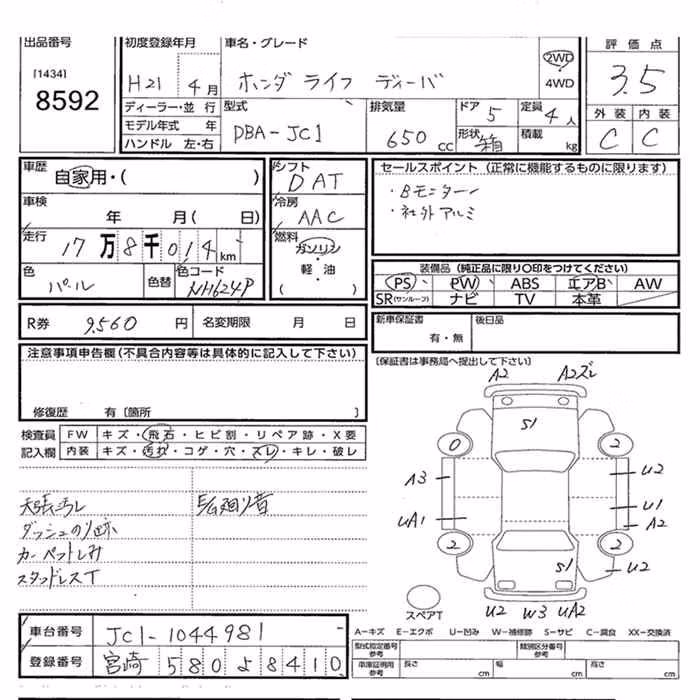 出品番号
[1434]
8592
初度登録年月
H21 4月
ディーラー・並 行
モデル年式 年
ハンドル 左・右
車名・グレード
ホンダ ライフ ディーバ
2WD
4WD
型式
DBA-JC1
排気量
650 cc
ドア 5
形状 箱
定員 4人
積載 kg
評価点
3.5
外装 内装
C C
車歴
自家用・( )
車検
年 月( 日)
走行
17万8千014km
色
パール
色替
色コード
NH624P
シフト
DAT
冷房
AAC
燃料
ガソリン
・
軽・油
( )
セールスポイント (正常に機能するものに限ります)
・Bモニター
・社外アルミ
装備品 (純正品に限り○印をつけてください)
PS PW ABS エアB AW
SR(サンルーフ) ナビ TV 本革
R券 9,560 円 名変期限 月 日
新車保証書
有・無
後日品
[保証書は事務局へ提出して下さい]
注意事項申告欄(不具合内容等は具体的に記入して下さい)
修復歴 有 [箇所 ]
検査員 FW キズ・飛石・ヒビ割・リペア跡・X要
記入欄 内装 キズ・汚れ・コゲ・穴・スレ・キレ・破レ
天張汚レ
ダッシュのり跡
カーペットしみ
スタッドレスT
A2 A2ズレ
S1
0 2
A3 U2
U1
UA1 A2
2 2
S1 U2
スペアT
U2 W3 UA2
車台番号 JC1-1044981
登録番号 宮崎 580よ8410
A-キズ E-エクボ U-凹み W-補修跡 S-サビ C-腐食 XX-交換済
型式指定番号
参考
類別区分番号
参考
車庫証明用
参考
長さ cm 幅 cm 高さ cm